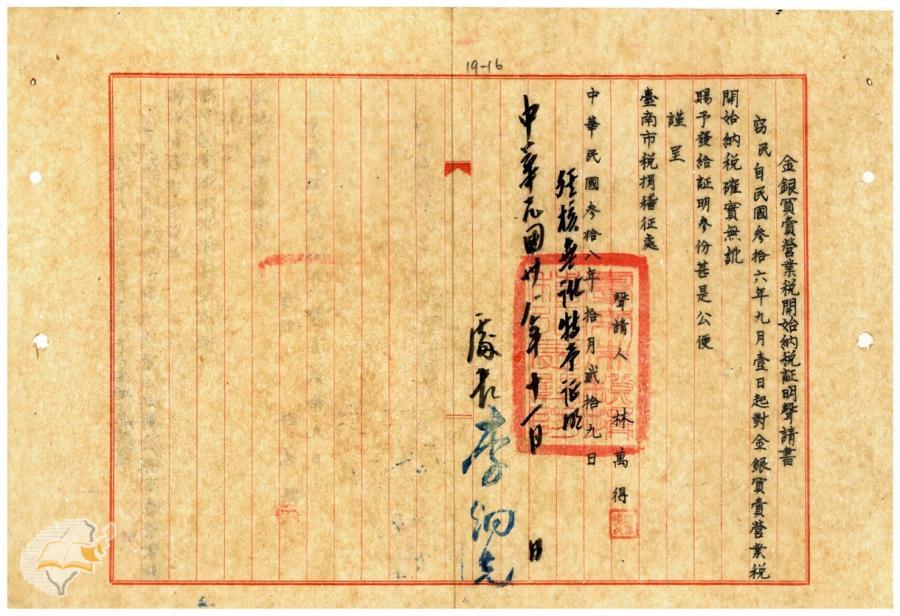 19-16
金銀買賣營業税開始納税証明聲請書
窃民自民國參拾六年九月壹日起對金銀買賣營業税
開始納税確實無訛
賜予發給証明參份甚是公便
謹呈
臺南市税捐稽征處
聲請人 林萬得
中華民國參拾八年拾月貳拾九日
經核無訛特予証明
中華民國卅八年十一月 日
處長